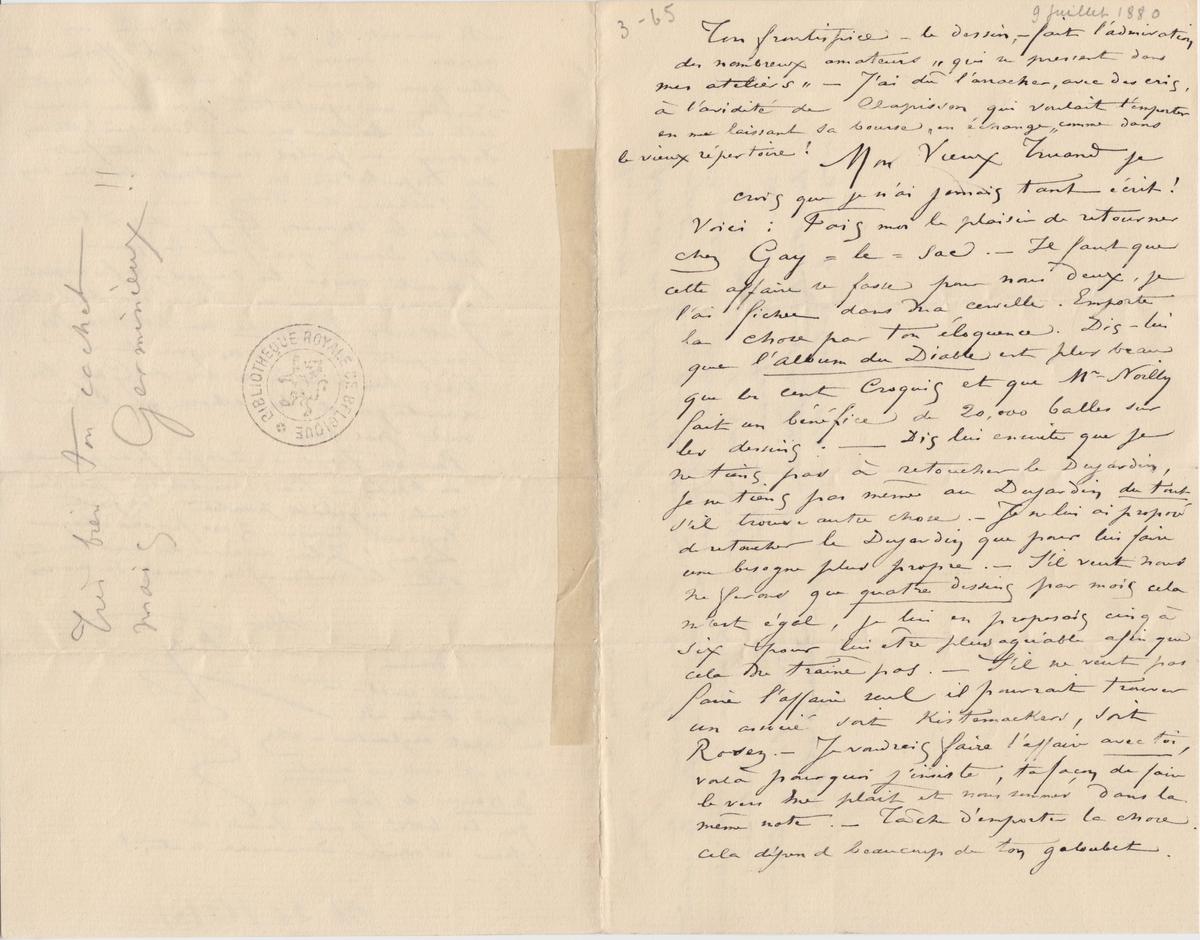 Très bien ton cachet
mais Germinieux !!
BIBLIOTHEQUE ROYALE DE BELGIQUE
3 - 65
9 juillet 1880
Ton frontispice – le dessin, – fait l'admiration
des nombreux amateurs „ qui se pressent dans
mes ateliers „ — J'ai dû l'arracher, avec des cris,
à l'avidité de Clapisson qui voulait l'emporter
en me laissant sa bourse „en échange„ comme dans
le vieux répertoire !
Mon Vieux Truand je
crois que je n'ai jamais tant écrit !
Voici : Fais moi le plaisir de retourner
chez Gay = le = sac . — Il faut que
cette affaire se fasse pour nous deux, je
l'ai fichée dans ma cervelle . Emporte
la chose par ton éloquence. Dis-lui
que l'album du Diable est plus beau
que les cent Croquis et que Mr Noilly
fait un bénéfice de 20,000 balles sur
les dessins : — Dis lui ensuite que je
ne tiens pas à retoucher le Dujardin,
Je ne tiens pas même au Dujardin du tout
s'il trouve autre chose . — Je ne lui ai proposé
de retoucher le Dujardin que pour lui faire
une besogne plus propre . — S'il veut nous
ne ferons que quatre dessins par mois cela
m'est égal, je lui en proposais cinq à
six pour lui être plus agréable afin que
cela ne traine pas . — S'il ne veut pas
faire l'affaire seul il pourrait trouver
un associé soit Kistemaekers, soit
Rozez. — Je voudrais faire l'affaire avec toi,
voilà pourquoi j'insiste, ta façon de faire
le vers me plait et nous sommes dans la
même note . — Tâche d'emporter la chose.
cela dépend beaucoup de ton galoubet .